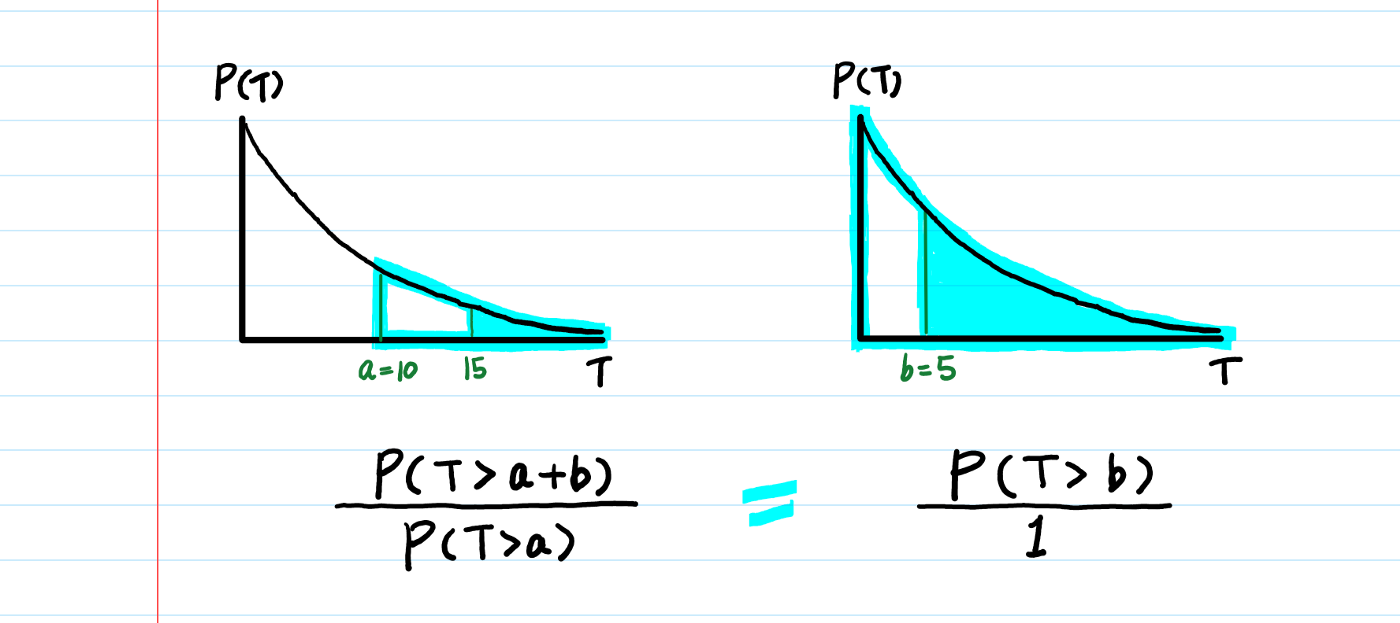 P(T)
P(T)
a=10 15 T
b=5 T
P(T > a+b)
P(T>a)
=
P(T > b)
1